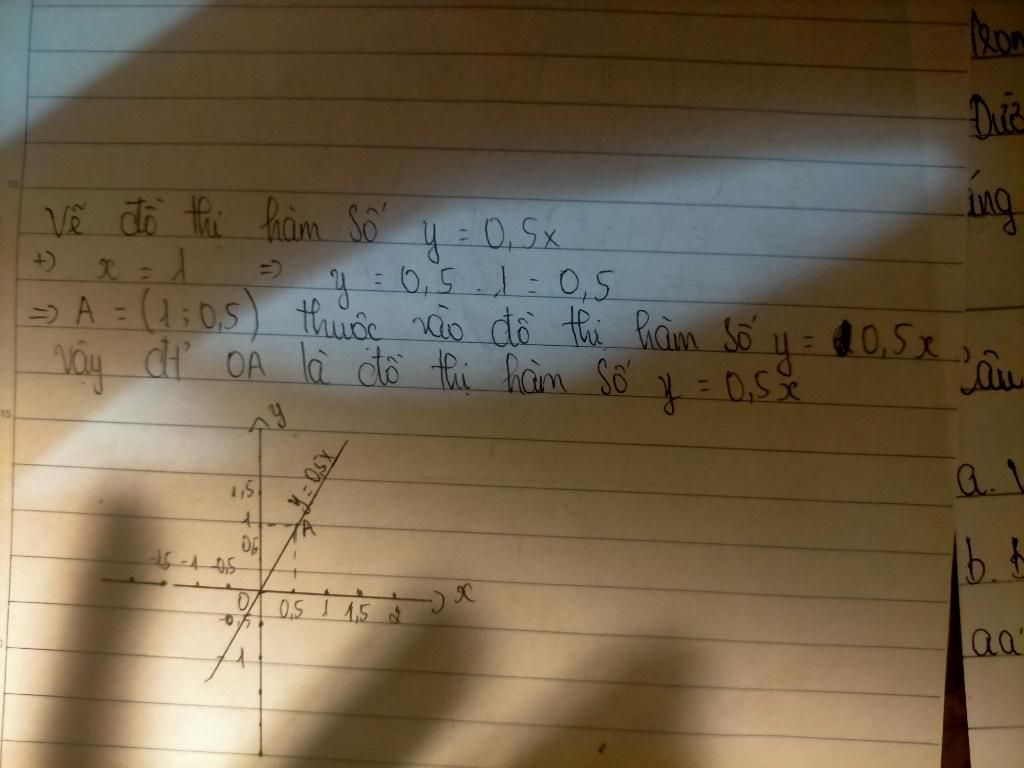 Vẽ đồ thị hàm số y = 0,5x
+) x = 1 => y = 0,5 . 1 = 0,5
=> A = (1 ; 0,5) thuộc vào đồ thị hàm số y = 0,5x
Vậy đt' OA là đồ thị hàm số y = 0,5x
y
y = 0,5x
1,5
1
A
0,5
-1,5 -1 -0,5
O 0,5 1 1,5 2 x
-0,5
-1
ing
a.
b.
aa
10
15